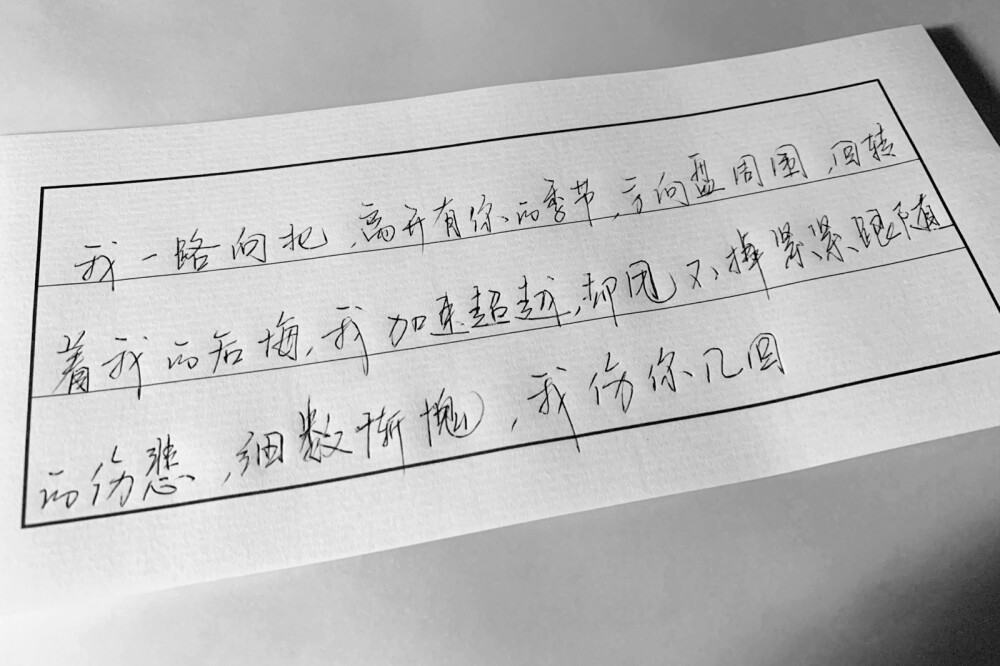 我一路向北,离开有你的季节,方向盘周围,回转
着我的后悔,我加速超越,却甩不掉紧紧跟随
的伤悲,细数惭愧,我伤你几回